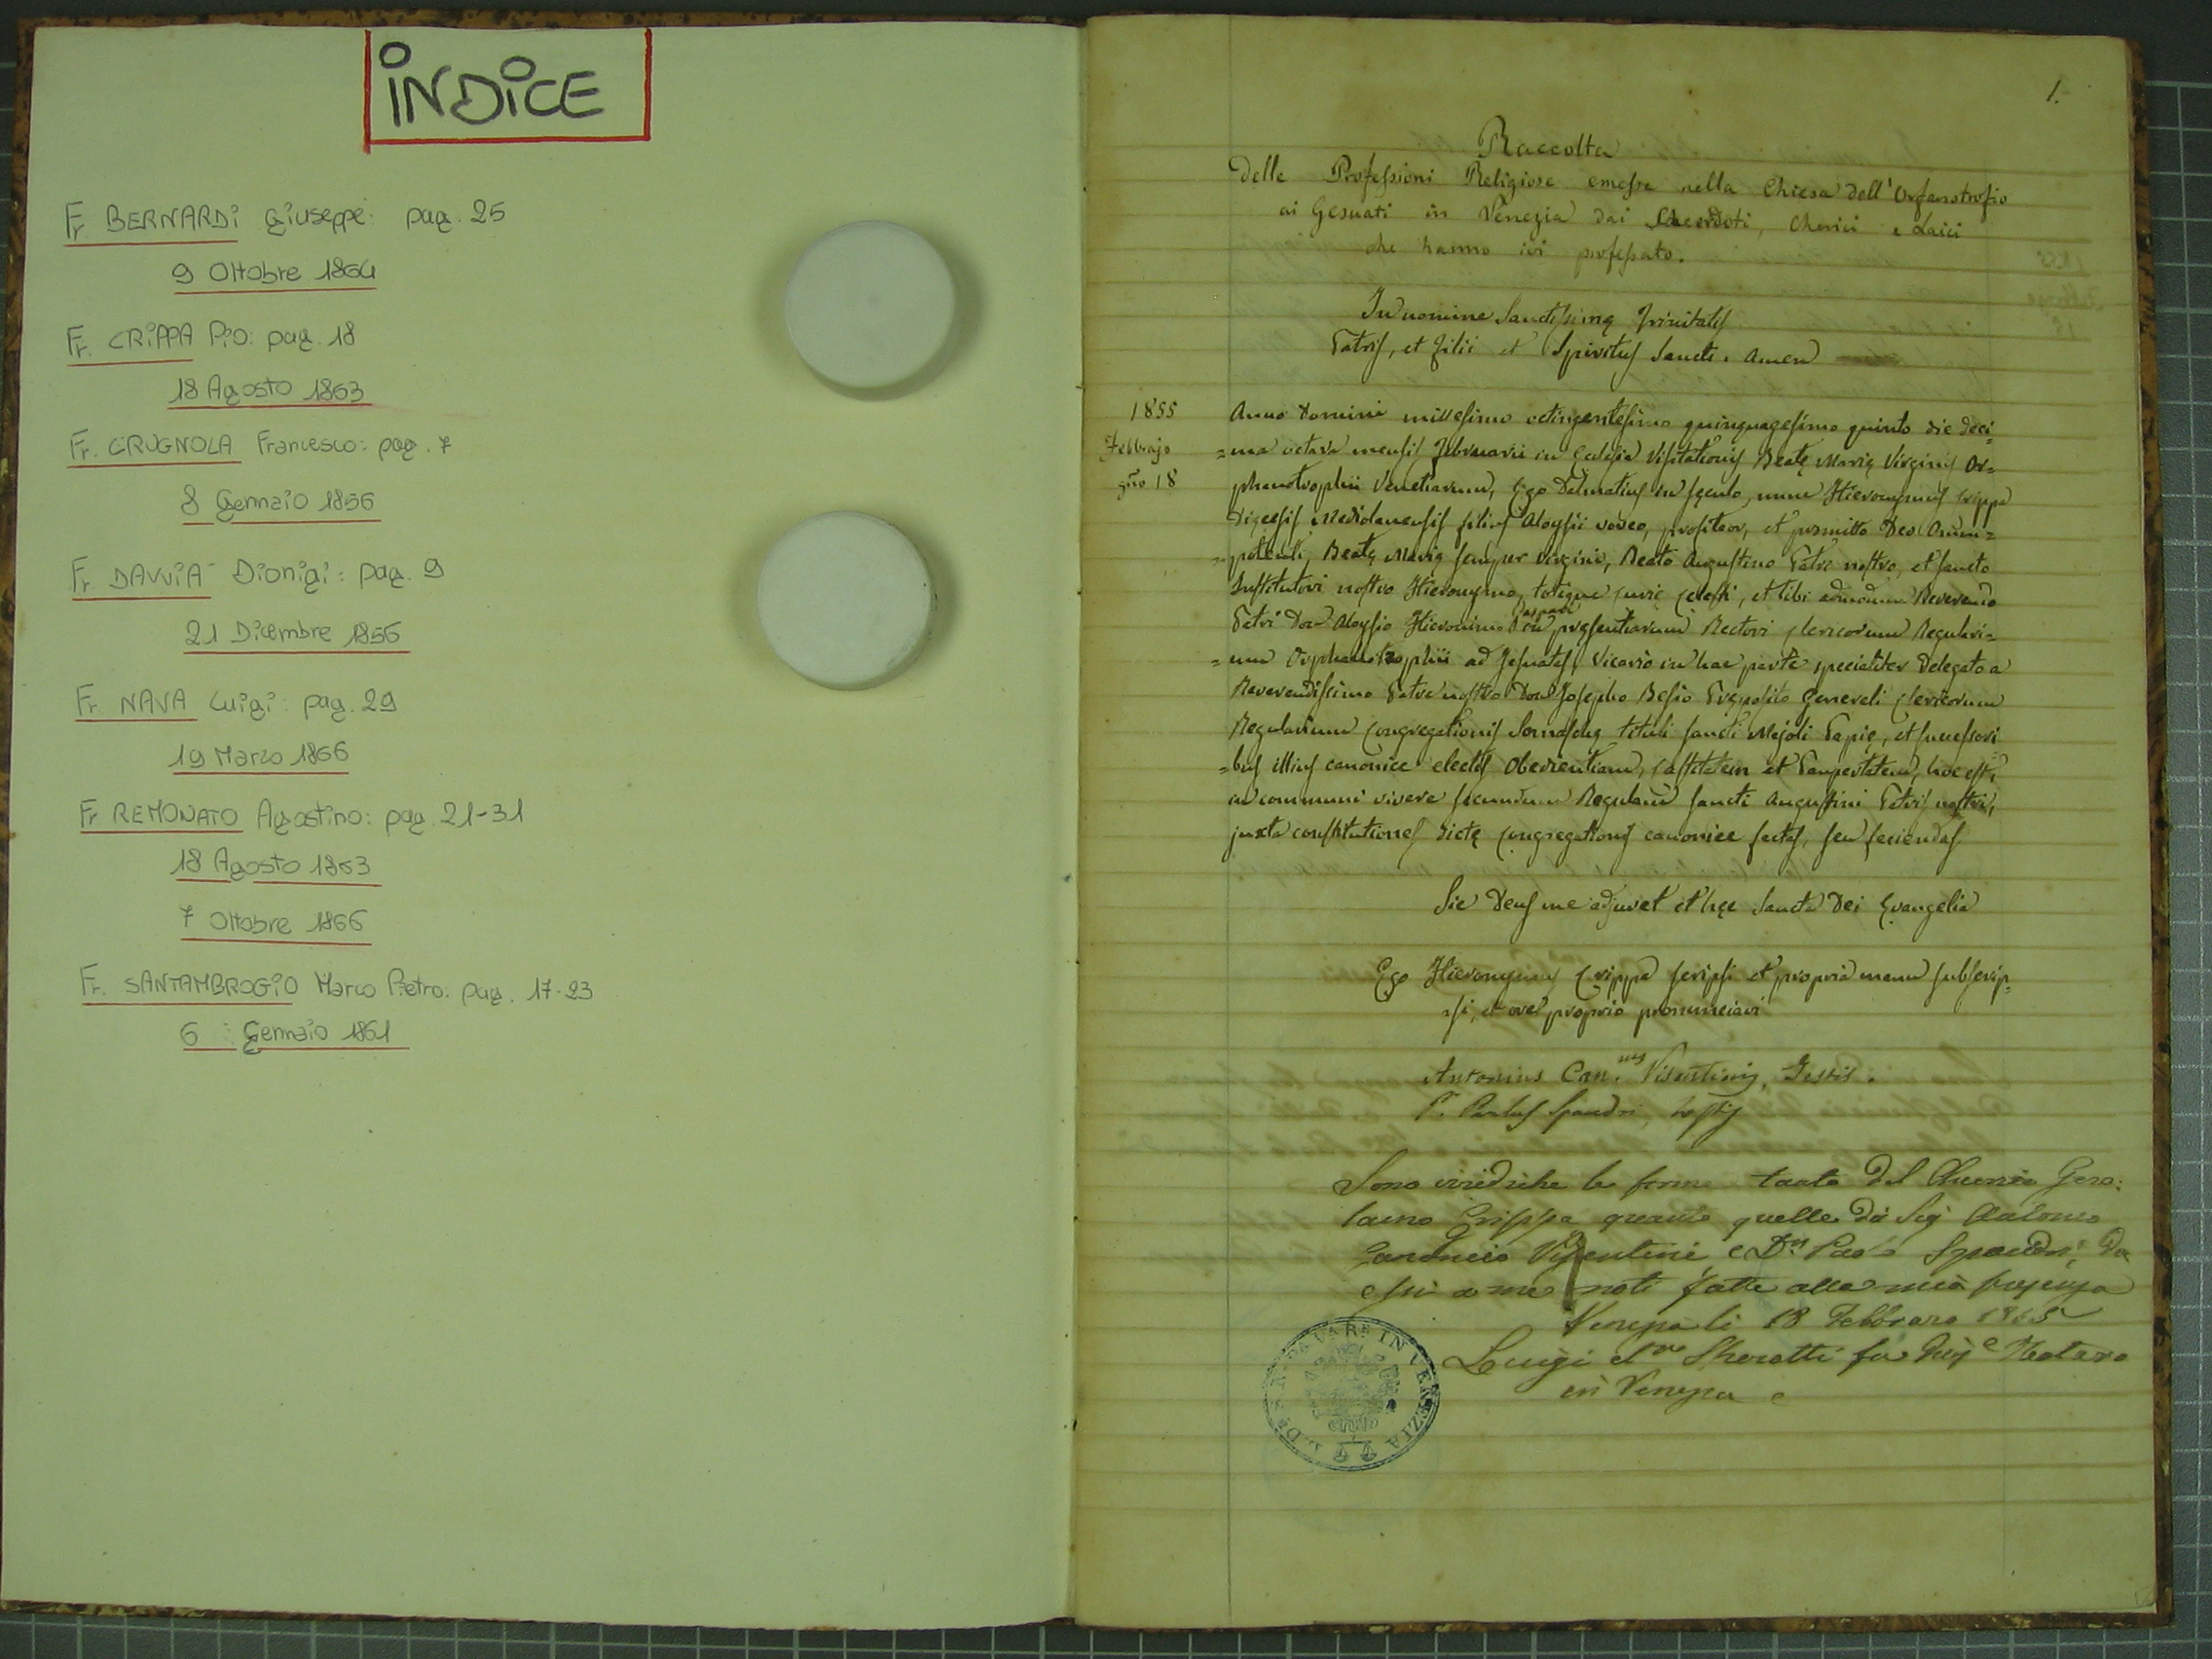 INDICE
Fr. BERNARDI Giuseppe: pag. 25
9 Ottobre 1864
Fr. CRIPPA Pio: pag. 18
18 Agosto 1863
Fr. CRUGNOLA Francesco: pag. 7
8 Gennaio 1856
Fr. DAVVIA Dionigi: pag. 9
21 Dicembre 1856
Fr. NAVA Luigi: pag. 29
19 Marzo 1866
Fr. REMONATO Agostino: pag. 21-31
18 Agosto 1863
7 Ottobre 1866
Fr. SANTAMBROGIO Marco Pietro: pag. 17-23
6 : Gennaio 1861
1.
Raccolta
delle Professioni Religiose emesse nella Chiesa dell'Orfanotrofio
ai Gesuati in Venezia dai Sacerdoti, Cherici e Laici
che hanno ivi professato.
In nomine Sanctissimę Trinitatis
Patris, et Filii et Spiritus Sancti. Amen
1855
Febbrajo
gno 18
Anno Domini millesimo octingentesimo quinquagesimo quinto die deci=
=ma octava mensis Februarii in Ecclesia Visitationis Beatę Marię Virginis Or=
phanotrophii Venetiarum, Ego Dalmatius in sęculo, nunc Hieronymus Crippa
Dięcesis Mediolanensis filius Aloysii voveo, profiteor, et promitto Deo Omni=
=potenti, Beatę Marię semper Virgini, Beato Augustino Patri nostro, et sancto
Institutori nostro Hieronymo, totique curię cęlesti, et tibi admodum Reverendo
Patri Don Aloysio Hieronimo Gaspare pręsentiarum Rectori Clericorum Regulari=
=um Orphanotrophii ad Jesuatos, Vicario in hac parte specialiter Delegato a
Reverendissimo Patre nostro Don Josepho Besio Pręposito Generali Clericorum
Regularium Congregationis Somaschę tituli sancti Majoli Papię, et successori
=bus illius canonice electis Obedientiam, Castitatem et Paupertatem, hoc est,
in communi vivere secundum Regulam sancti Augustini Patris nostri,
juxta constitutiones dictę Congregationis canonice factas, seu faciendas
Sic Deus me adjuvet et hęc Sancta Dei Evangelia
Ego Hieronymus Crippa scripsi et propria manu subscrip=
=si, et ore proprio pronunciavi
Antonius Can.cus Visentini, Testis.
P. Paulus Spandri, testis
Sono viridiche le firme tanto del Cherico Giro:
lamo Crippa quanto quelle di Sig Antonio
Canonico Visentini, e Dn Paolo Spandri, da
essi a me noti fatte alla mia presenza
Venezia li 18 Febbraro 1855
Luigi Dr fu Notaro
in Venezia
NOTARE IN VENEZIA